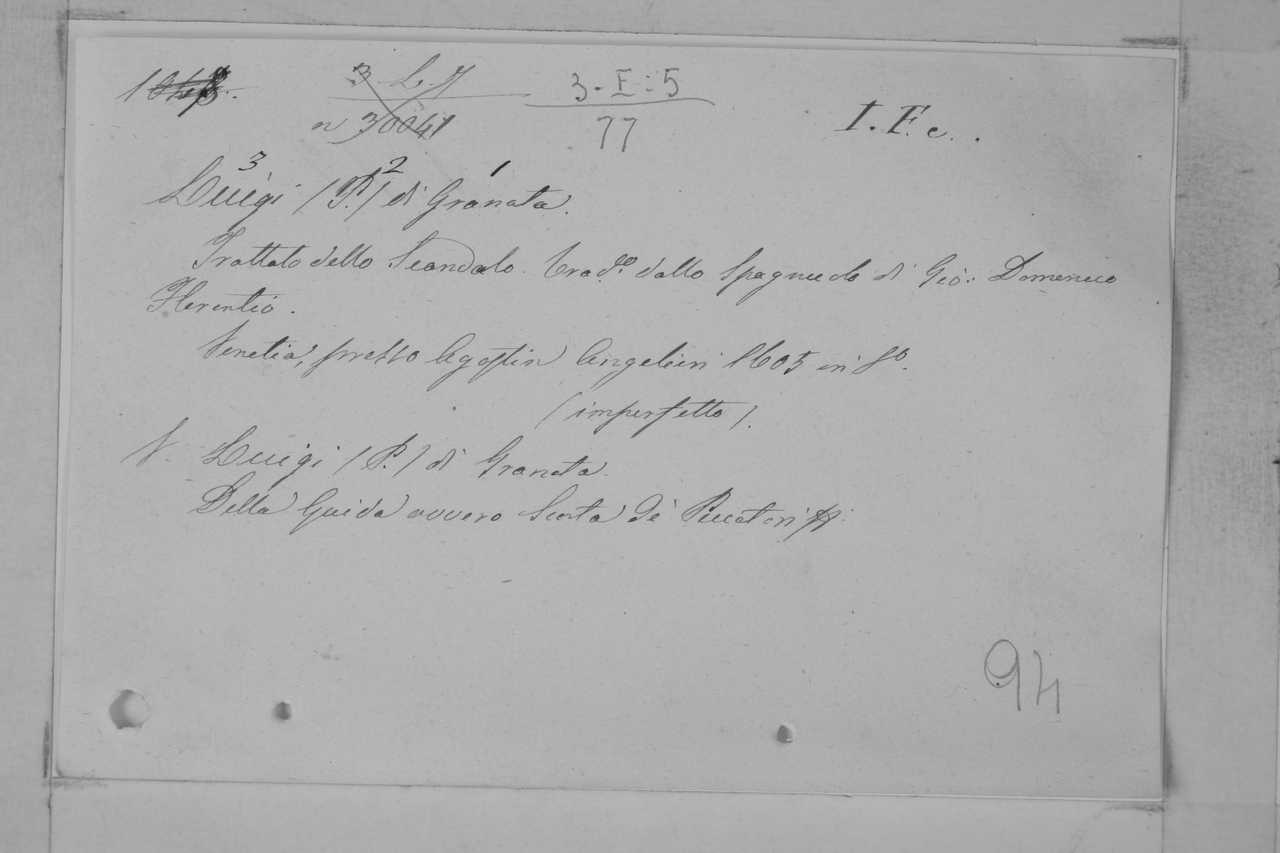 3 L. 7 3-E:5 I. F. c.
n 30041 77
3 2 1
Luigi (P.) di Granata.
Trattato dello Scandalo. Trad.º dallo Spagnuolo di Gio: Domenico
Florentio.
Venetia, presso Agostin Angelieri 1605 in 8º.
(imperfetto).
V. Luigi (P.) di Granata.
Della Guida ovvero Scorta de' Peccatori
94